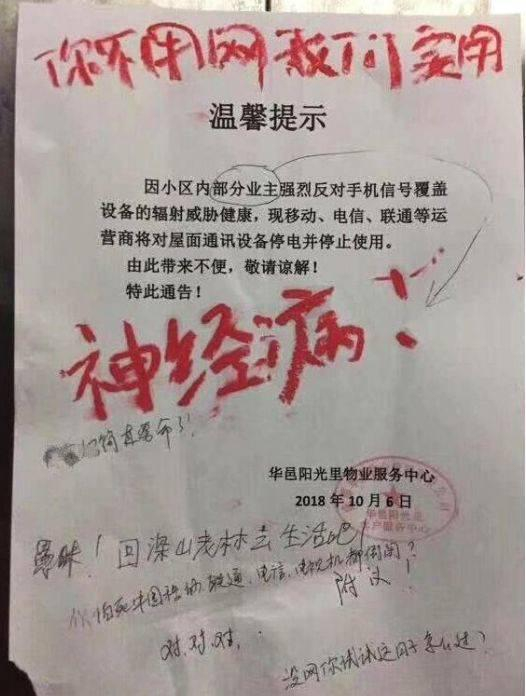 你不用网 我们实用
温馨提示
因小区内部分业主强烈反对手机信号覆盖
设备的辐射威胁健康，现移动、电信、联通等运
营商将对屋面通讯设备停电并停止使用。
由此带来不便，敬请谅解！
特此通告！
神经病！
简直要命了！
华邑阳光里物业服务中心
2018 年 10 月 6 日
华邑阳光里
客户服务中心
愚昧！回深山老林去生活吧！
怕死 联通、电信、电视机都倒闭？
附议！
对、对、对、
没网你试试这日子怎么过？